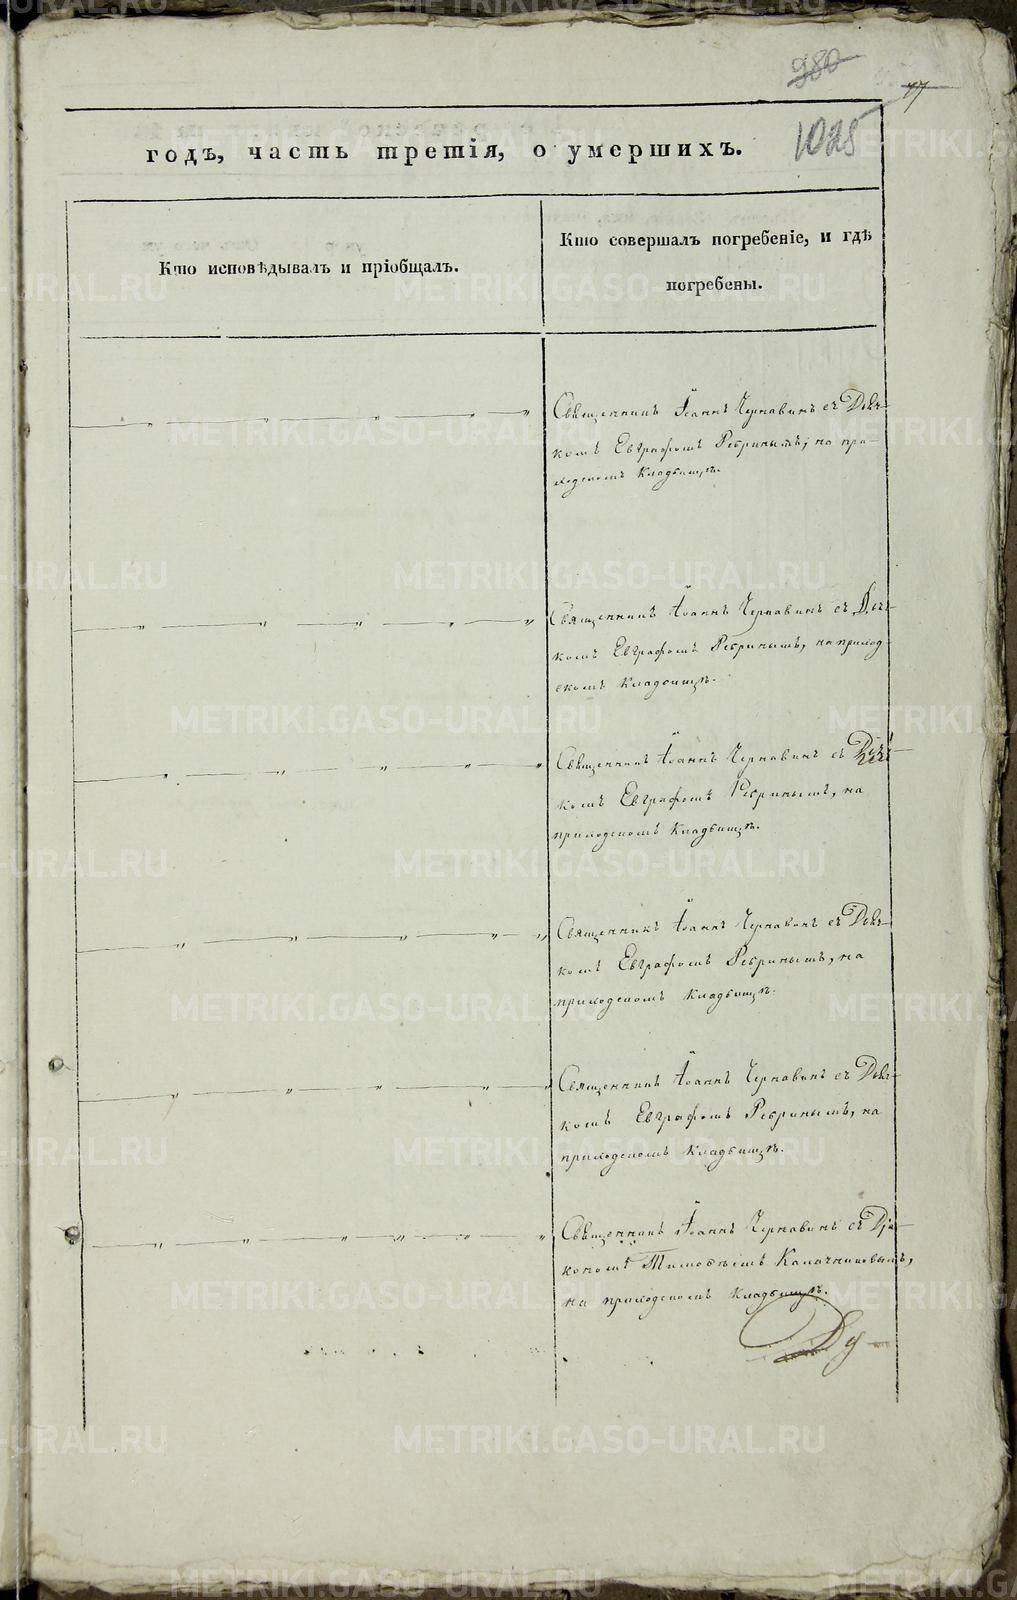 980
77
1025
годъ, часть третія, о умершихъ.
Кто исповѣдывалъ и пріобщалъ.
Кто совершалъ погребеніе, и гдѣ
погребены.
Священникъ Іоаннъ Чернавинъ съ Дьяч-
комъ Евграфомъ Ребринымъ, на при-
ходскомъ кладбищѣ.
Священникъ Іоаннъ Чернавинъ съ Дьяч-
комъ Евграфомъ Ребринымъ, на приход-
скомъ кладбищѣ.
Священникъ Іоаннъ Чернавинъ съ Дьяч-
комъ Евграфомъ Ребринымъ, на
приходскомъ кладбищѣ.
Священникъ Іоаннъ Чернавинъ съ Дьяч-
комъ Евграфомъ Ребринымъ, на
приходскомъ кладбищѣ.
Священникъ Іоаннъ Чернавинъ съ Дьяч-
комъ Евграфомъ Ребринымъ, на
приходскомъ кладбищѣ.
Священникъ Іоаннъ Чернавинъ съ Дья-
кономъ Тимофѣемъ Калачниковымъ,
на приходскомъ кладбищѣ.
METRIKI.GASO-URAL.RU